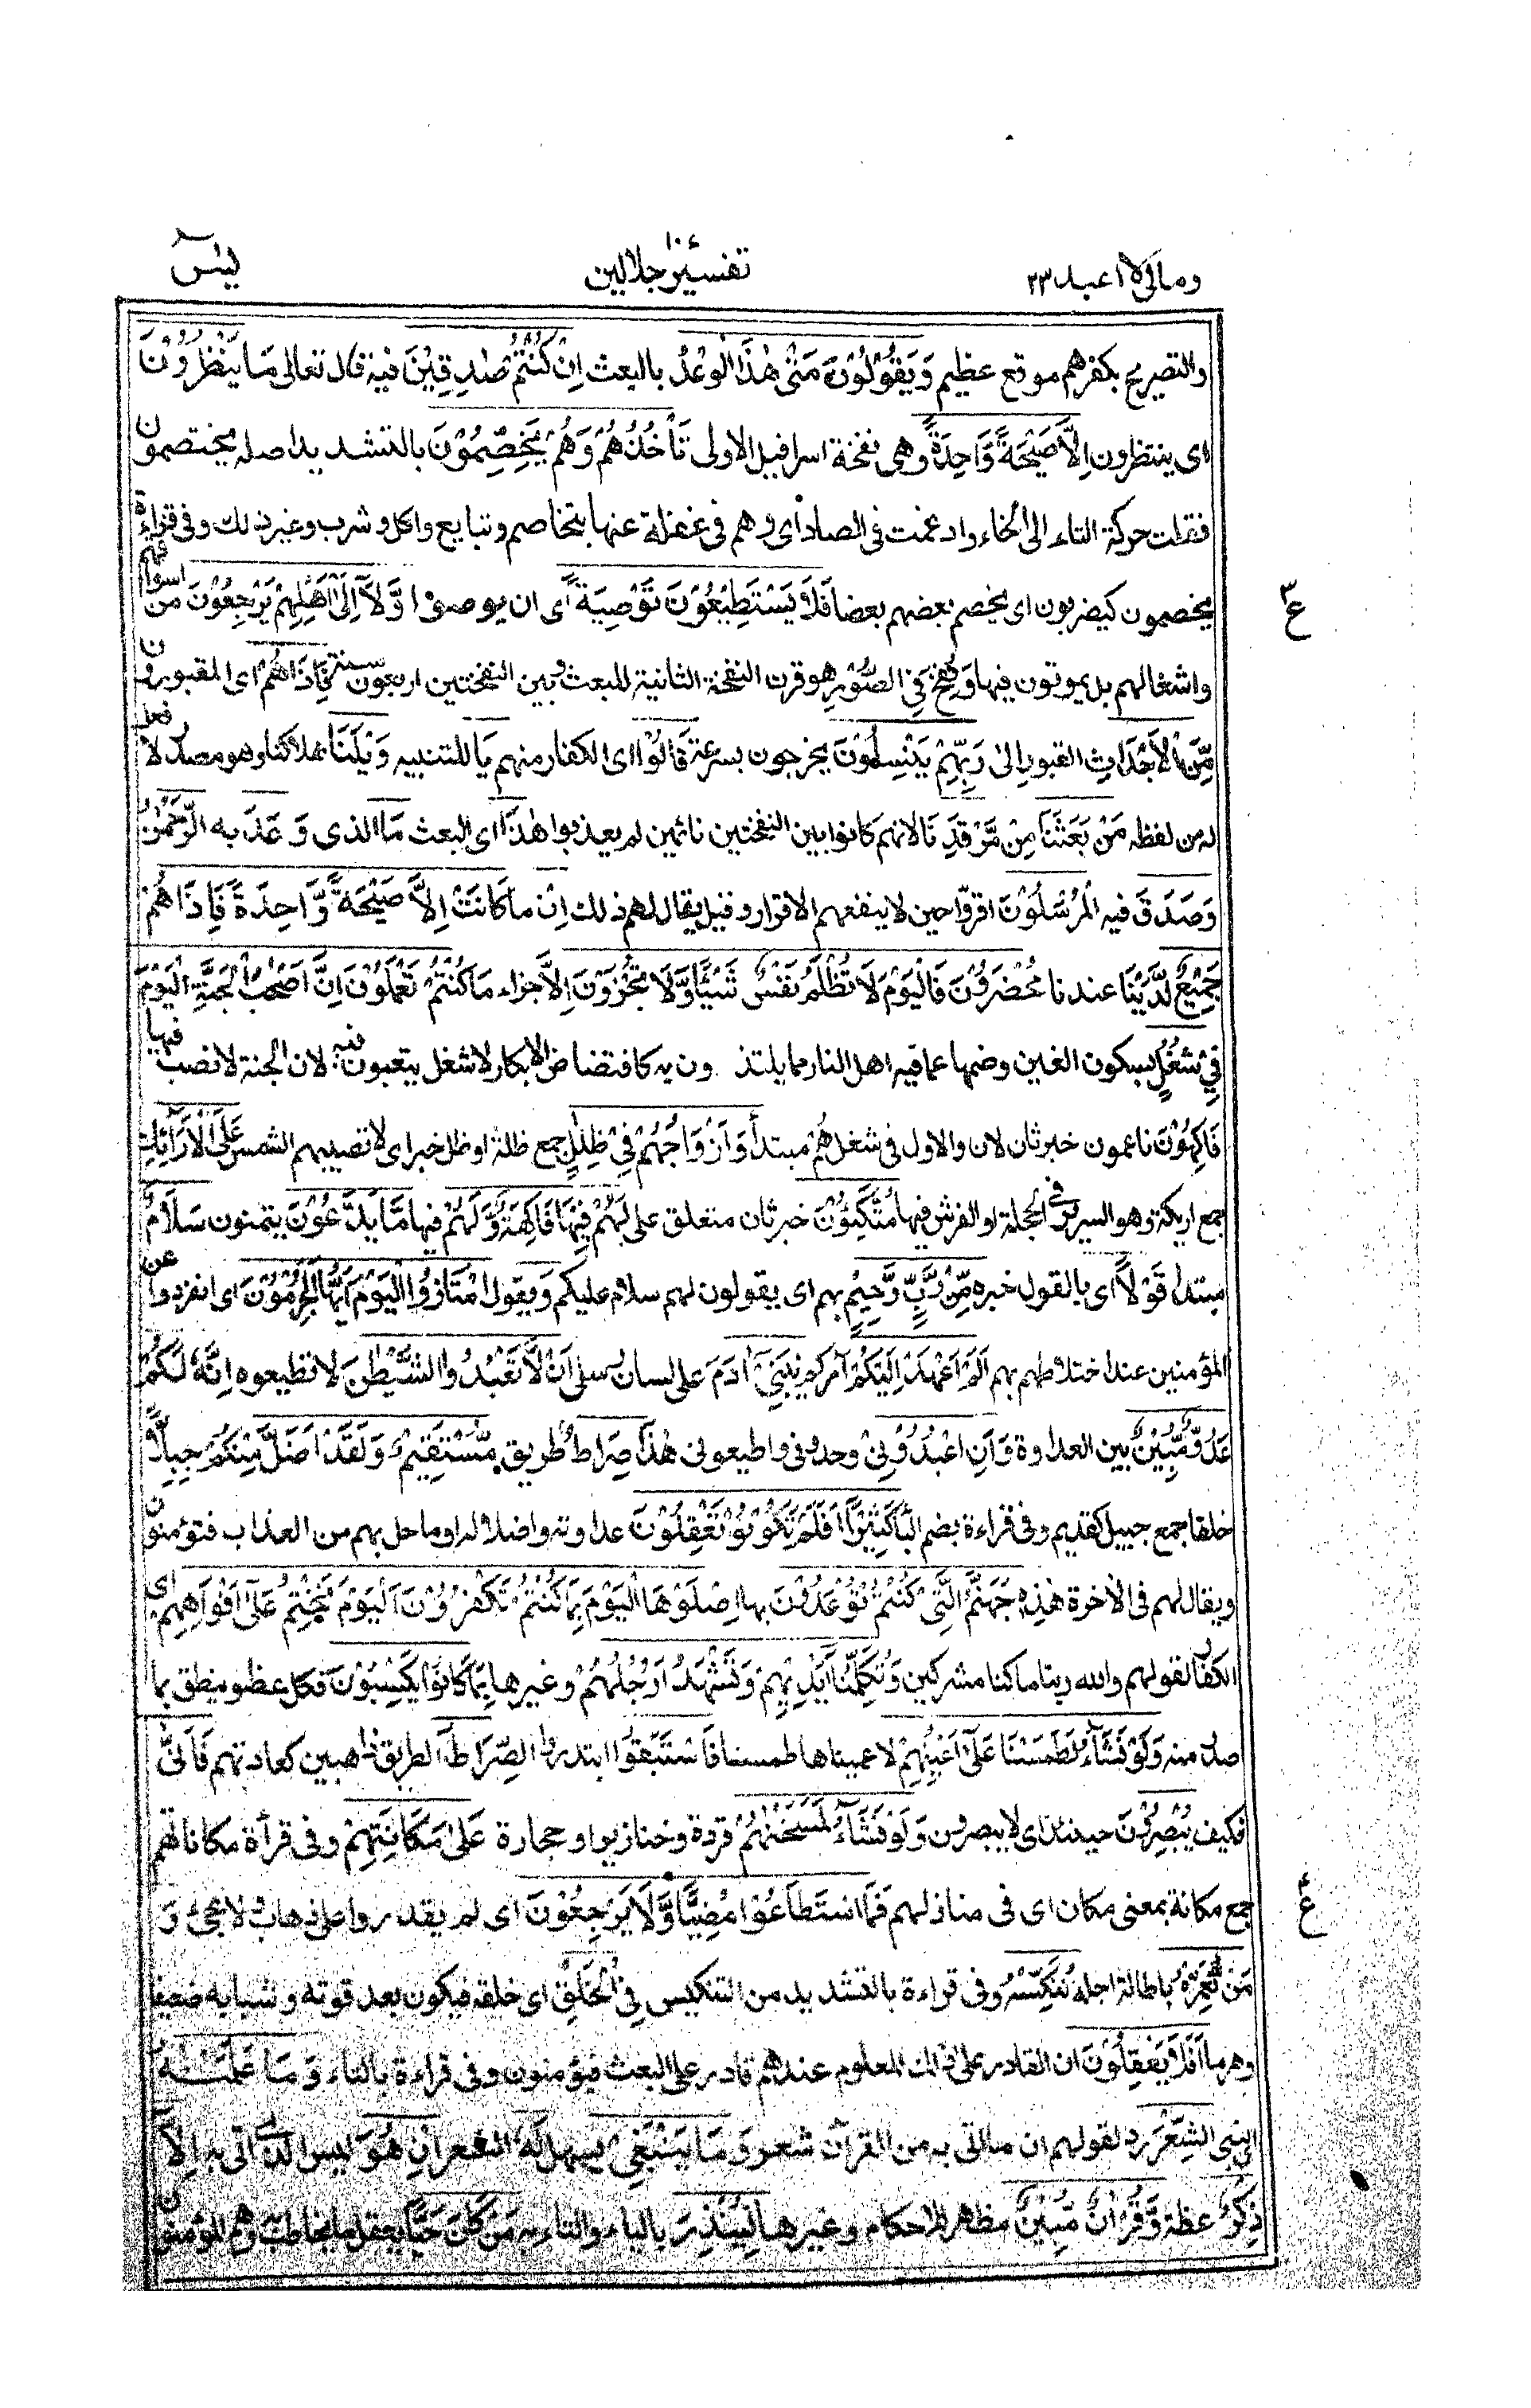 ومالی لا اعبد ۲۳
تفسیر جلالین
یٰسٓ
والتصریح بکفرهم موقع عظیم وَيَقُوْلُوْنَ مَتٰى هٰذَا الْوَعْدُ بالبعث اِنْ كُنْتُمْ صٰدِقِيْنَ فیه قال تعالی مَا يَنْظُرُوْنَ
ای ینتظرون اِلَّا صَيْحَةً وَّاحِدَةً وهی نفخة اسرافیل الاولی تَاْخُذُهُمْ وَهُمْ يَخِصِّمُوْنَ بالتشدید اصله یختصمون
فنقلت حرکة التاء الی الخاء وادغمت فی الصاد ای وهم فی غفلة عنها بتخاصم وتبایع واکل وشرب وغیر ذلك وفی قراءة
یخصمون کیضربون ای یخصم بعضهم بعضا فَلَا يَسْتَطِيْعُوْنَ تَوْصِيَةً ای ان یوصوا وَّلَآ اِلٰٓى اَهْلِهِمْ يَرْجِعُوْنَ من اسواقهم
واشغالهم بل یموتون فیها وَنُفِخَ فِي الصُّوْرِ هو قرن النفخة الثانیة للبعث وبین النفختین اربعون سنة فَاِذَا هُمْ ای المقبورون
مِّنَ الْاَجْدَاثِ القبور اِلٰى رَبِّهِمْ يَنْسِلُوْنَ یخرجون بسرعة قَالُوْا ای الکفار منهم يَا للتنبیه وَيْلَنَا هلاکنا وهو مصدر لا فعل
له من لفظه مَنْۢ بَعَثَنَا مِنْ مَّرْقَدِنَا لانهم کانوا بین النفختین نائمین لم یعذبوا هٰذَا ای البعث مَا الذی وَعَدَ به الرَّحْمٰنُ
وَصَدَقَ فیه الْمُرْسَلُوْنَ اقرّوا حین لا ینفعهم الاقرار وقیل یقال لهم ذلك اِنْ ما كَانَتْ اِلَّا صَيْحَةً وَّاحِدَةً فَاِذَا هُمْ
جَمِيْعٌ لَّدَيْنَا عندنا مُحْضَرُوْنَ فَالْيَوْمَ لَا تُظْلَمُ نَفْسٌ شَيْـًٔا وَّلَا تُجْزَوْنَ اِلَّا جزاء مَا كُنْتُمْ تَعْمَلُوْنَ اِنَّ اَصْحٰبَ الْجَنَّةِ الْيَوْمَ
فِيْ شُغُلٍ بسکون الغین وضمها عما فیه اهل النار مما یلتذون به کافتضاض الابکار لا شغل یتعبون فیه لان الجنة لا نصب فیها
فَاكِهُوْنَ ناعمون خبر ثان لان والاول فی شغل هُمْ مبتدأ وَاَزْوَاجُهُمْ فِيْ ظِلٰلٍ جمع ظلة او ظل خبر ای لا تصیبهم الشمس عَلَى الْاَرَآئِكِ
جمع اریکة وهو السریر فی الحجلة او الفرش فیها مُتَّكِـُٔوْنَ خبر ثان متعلق علی لَهُمْ فِيْهَا فَاكِهَةٌ وَّلَهُمْ فیها مَّا يَدَّعُوْنَ یتمنون سَلَامٌ
مبتدأ قَوْلًا ای بالقول خبره مِّنْ رَّبٍّ رَّحِيْمٍ بهم ای یقولون لهم سلام علیکم وَ یقول امْتَازُوا الْيَوْمَ اَيُّهَا الْمُجْرِمُوْنَ ای انفردوا عن
المؤمنین عند اختلاطهم بهم اَلَمْ اَعْهَدْ اِلَيْكُمْ آمرکم يٰبَنِيْٓ اٰدَمَ علی لسان رسلی اَنْ لَّا تَعْبُدُوا الشَّيْطٰنَ لا تطیعوه اِنَّهٗ لَكُمْ
عَدُوٌّ مُّبِيْنٌ بین العداوة وَّاَنِ اعْبُدُوْنِيْ وحدونی واطیعونی هٰذَا صِرَاطٌ طریق مُّسْتَقِيْمٌ وَلَقَدْ اَضَلَّ مِنْكُمْ جِبِلًّا
خلقا جمع جبیل کقدیم وفی قراءة بضم البا كَثِيْرًا اَفَلَمْ تَكُوْنُوْا تَعْقِلُوْنَ عداوته واضلاله او ما حل بهم من العذاب فتؤمنون
ویقال لهم فی الاخرة هٰذِهٖ جَهَنَّمُ الَّتِيْ كُنْتُمْ تُوْعَدُوْنَ بها اِصْلَوْهَا الْيَوْمَ بِمَا كُنْتُمْ تَكْفُرُوْنَ اَلْيَوْمَ نَخْتِمُ عَلٰٓى اَفْوَاهِهِمْ ای
الکفار لقولهم والله ربنا ما کنا مشرکین وَتُكَلِّمُنَآ اَيْدِيْهِمْ وَتَشْهَدُ اَرْجُلُهُمْ وغیرها بِمَا كَانُوْا يَكْسِبُوْنَ فکل عضو ینطق بما
صدر منه وَلَوْ نَشَآءُ لَطَمَسْنَا عَلٰٓى اَعْيُنِهِمْ لاعمیناها طمسا فَاسْتَبَقُوا ابتدروا الصِّرَاطَ الطریق ذاهبین کعادتهم فَاَنّٰى
فکیف يُبْصِرُوْنَ حینئذ ای لا یبصرون وَلَوْ نَشَآءُ لَمَسَخْنٰهُمْ قردة وخنازیر او حجارة عَلٰى مَكَانَتِهِمْ وفی قرأة مکاناتهم
جمع مکانة بمعنی مکان ای فی منازلهم فَمَا اسْتَطَاعُوْا مُضِيًّا وَّلَا يَرْجِعُوْنَ ای لم یقدروا علی ذهاب ولا مجیٔ وَ
مَنْ نُّعَمِّرْهُ باطالة اجله نُنَكِّسْهُ وفی قراءة بالتشدید من التنکیس فِي الْخَلْقِ ای خلقه فیکون بعد قوته وشبابه ضعیفا
وهرما اَفَلَا يَعْقِلُوْنَ ان القادر علی ذلك المعلوم عندهم قادر علی البعث فیؤمنون وفی قراءة بالتاء وَمَا عَلَّمْنٰهُ
النبی الشِّعْرَ رد لقولهم ان ما اتی به من القرآن شعر وَمَا يَنْبَغِيْ یسهل لَهٗ الشعر اِنْ هُوَ لیس الذی اتی به اِلَّا
ذِكْرٌ عظة وَّقُرْاٰنٌ مُّبِيْنٌ مظهر للاحکام وغیرها لِّيُنْذِرَ بالیاء والتاء به مَنْ كَانَ حَيًّا یعقل ما یخاطب وهم المؤمنون